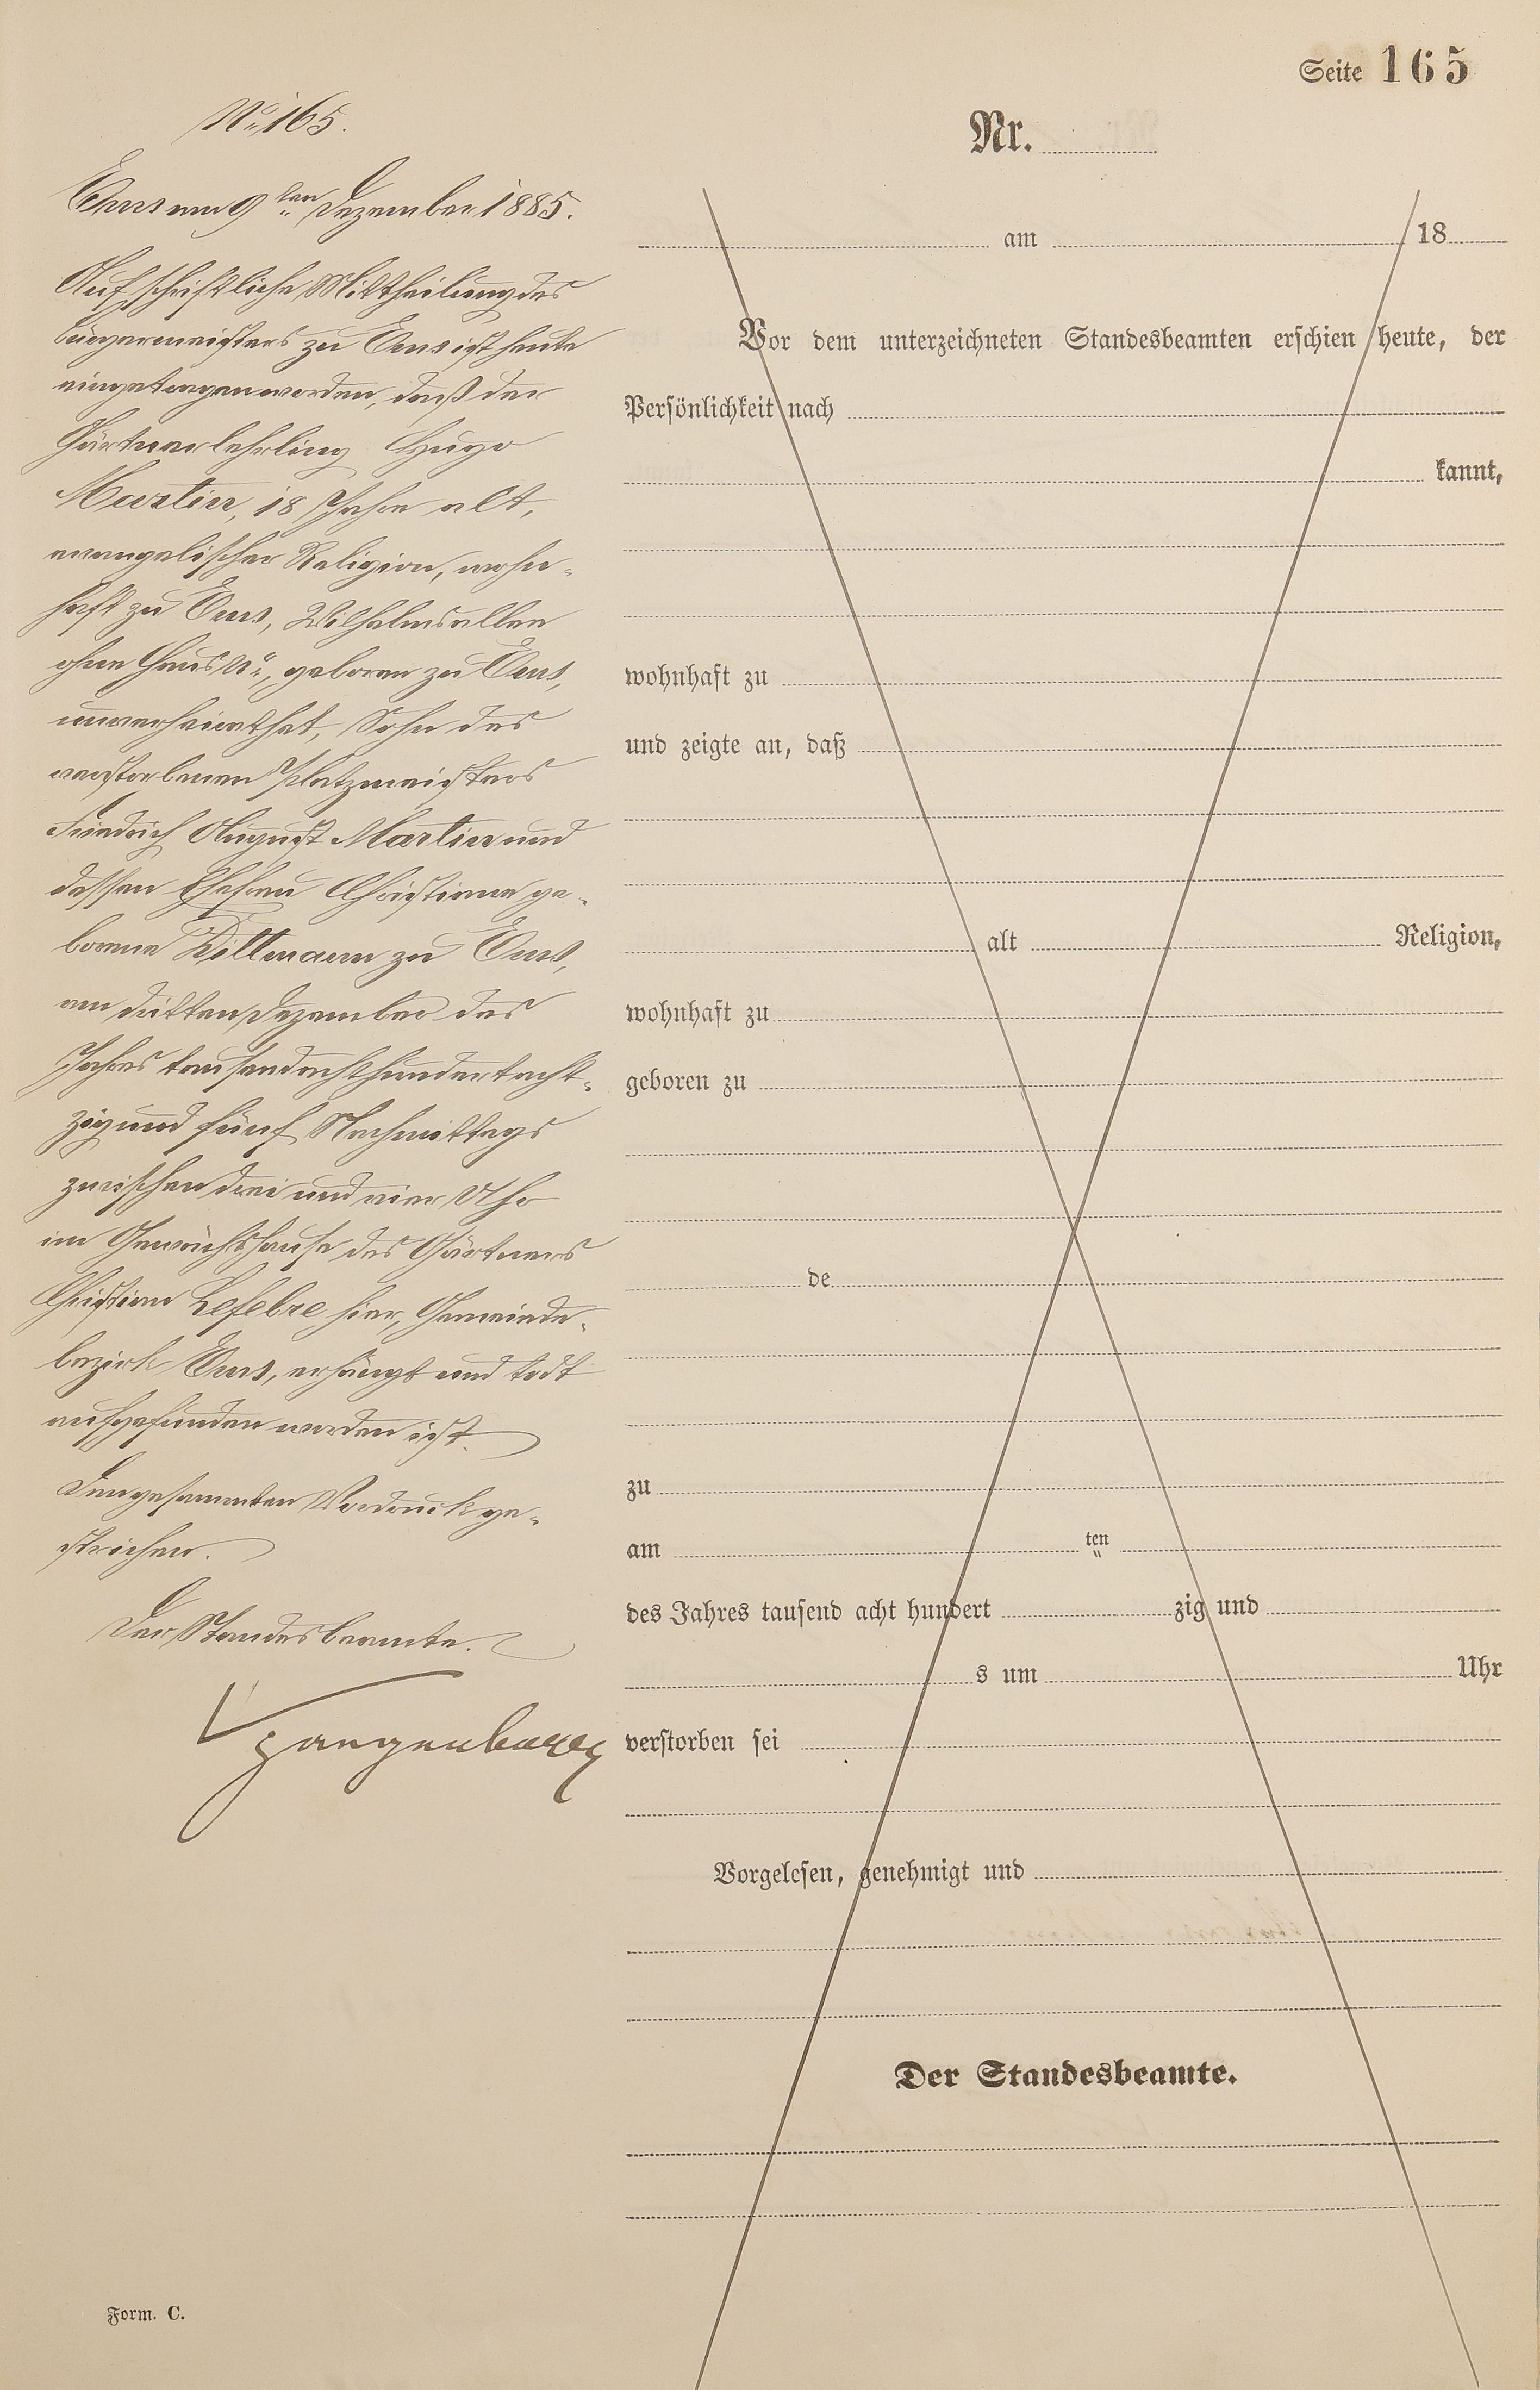 Seite 165
No 165.
Ems am 9ten Dezember 1885.
Auf schriftliche Mittheilung des
Bürgermeisters zu Ems ist heute
eingetragen worden, daß der
Gärtnerlehrling Hugo
Martin, 18 Jahre alt,
evangelischer Religion, wohn-
haft zu Ems, Wilhelmsallee
ohne Haus No, geboren zu Ems,
unverheirathet, Sohn des
verstorbenen Platzmeisters
Friedrich August Martin und
dessen Ehefrau Christiane ge-
borene Dittmann zu Ems,
am dritten Dezember des
Jahres tausendachthundertacht-
zig und fünf Nachmittags
zwischen drei und vier Uhr
im Gewächshause des Gärtners
Christian Lefebre hier, Gemeinde-
bezirk Ems, erhängt und todt
aufgefunden worden ist.
Den gesammten Vordruck ge-
strichen.
Der Standesbeamte.
Form. C.
Nr.
am 18
Vor dem unterzeichneten Standesbeamten erschien heute, der
Persönlichkeit nach
kannt,
wohnhaft zu
und zeigte an, daß
alt Religion,
wohnhaft zu
geboren zu
de
zu
am ten
des Jahres tausend acht hundert zig und
s um Uhr
verstorben sei
Vorgelesen, genehmigt und
Der Standesbeamte.